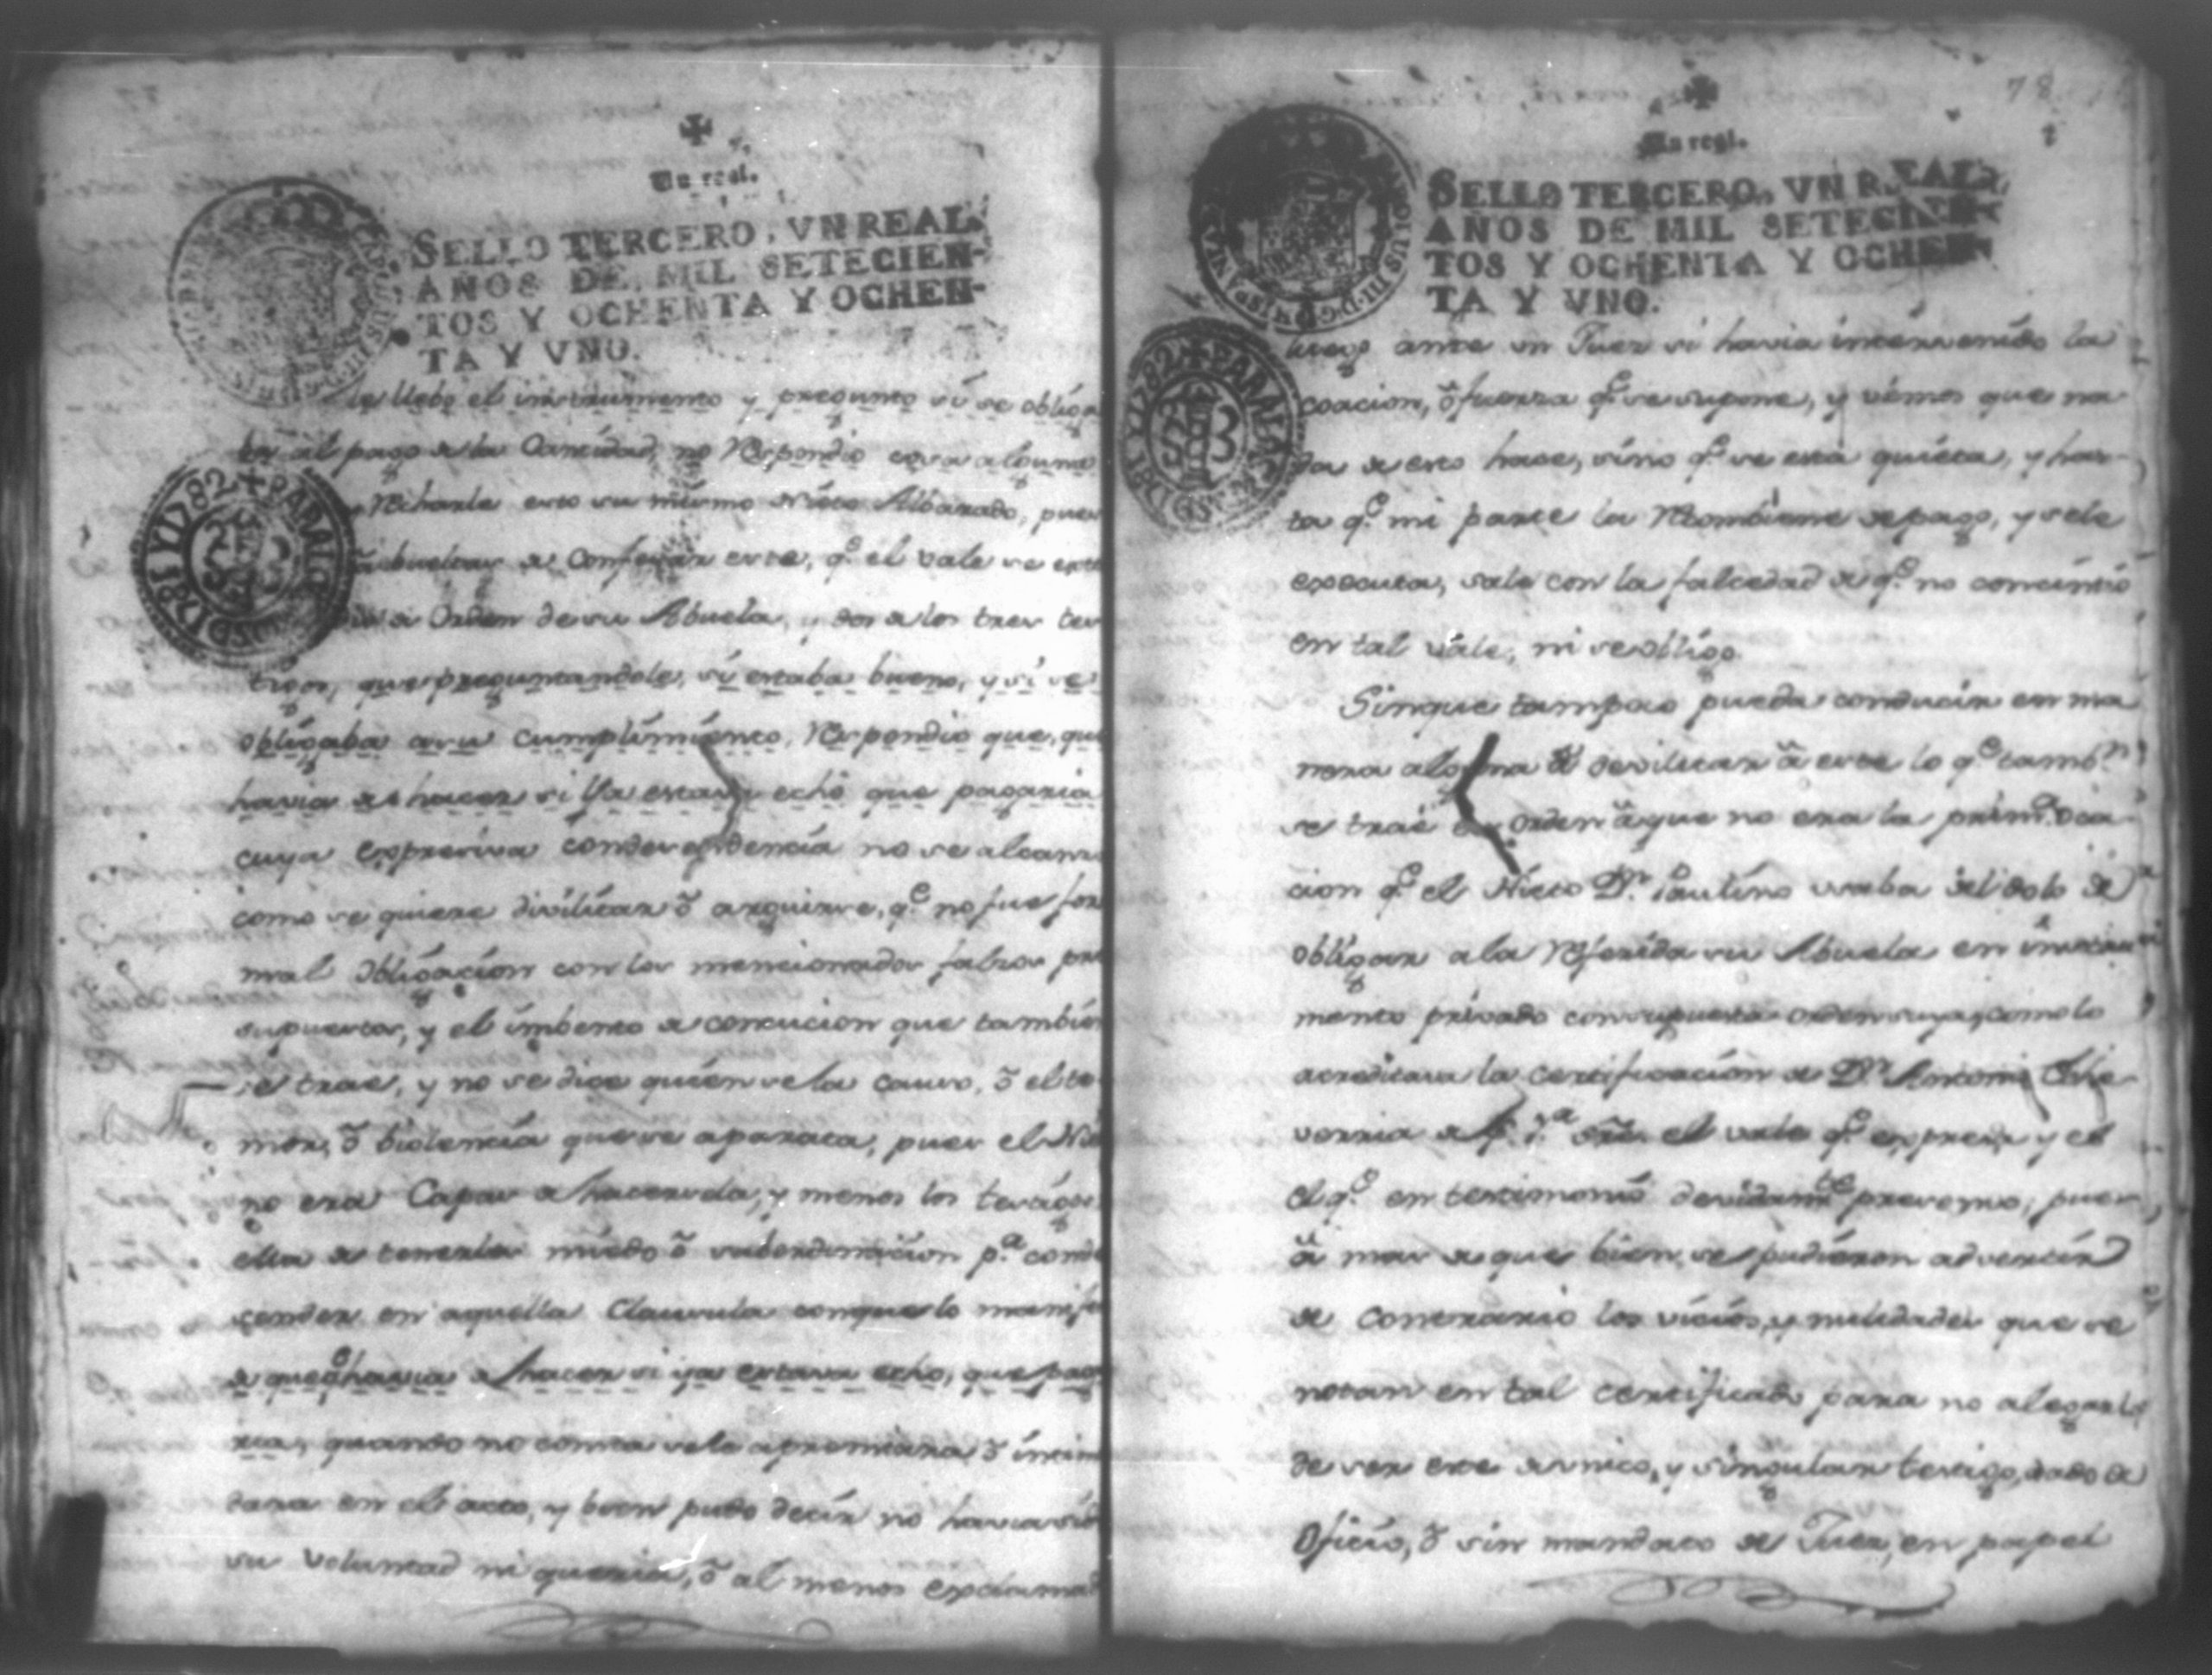 Un real.
SELLO TERCERO, VN REAL,
AÑOS DE MIL SETECIEN-
TOS Y OCHENTA Y OCHEN-
TA Y VNO.
le llebo el instrumento y pregunto si se obliga
ba al pago de la Cantidad, no Respondio cosa alguna
Rechasle esto su mismo Nieto Albarado, pues
abueltas de Confesar este, qe. el vale se exte
a Orden de su Abuela, y dos de los tres tes
tigos, que preguntandole, si estaba bueno, y si se
obligaba a su Cumplimiento, Respondio que, que
havia de hacer si Ya estava echo que pagaria
cuya expresiva condesendencia no se alcanza
como se quiere divilitar ô arguirse, qe. no fue for
mal Obligacion con los mencionados falsos pre
supuestos, y el imbento de concucion que tambien
se trae, y no se dice quien se la causo, ô el te
mor, ô biolencia que se aparata, pues el Nie
no era Capas de hacersela, y menos los testigos,
ella de tenerles miedo ô subordinacion pa. conde
sender en aquella Clausula conque lo manifes
de que havia de hacer si ya estava echo, que paga
ria, quando no consta se le apremiara ô intimi
dara en el acto, y bien pudo decir no havia sido
su Voluntad ni queria, ô al menos exclamad
78
Un real.
SELLO TERCERO, VN REAL,
AÑOS DE MIL SETECIEN-
TOS Y OCHENTA Y OCHEN-
TA Y VNO.
luego ante un Juez si havia intervenido la
coacion, ô fuerza qe. se supone, y vemos que na
da de esto hace, sino qe. se esta quieta, y has-
ta qe. mi parte la Recombiene de pago, y se le
executa, sale con la falcedad de qe. no concintio
en tal vale, ni se obligo.
Sinque tampoco pueda conducir en ma
nera alguna â devilitar â este lo qe. tambn.
se traé en orden â que no era la prima. oca-
cion qe. el Nieto Dn. Paulino usaba del dolo de
obligar a la Referida su Abuela en instru
mento privado con supuesta orden suya, como lo
acreditava la certificacion de Dn. Antonio
el vale qe. expresa y el
el qe. en testimonio devidamte. presento; pues
â mas de que bien se pudieron advertir
de Contrario los vicios, y nulidades que se
notan en tal certificado para no alegarlo
de ser este de unico, y singular testigo, dado de
Oficio, ô sin mandato de Juez, en papel